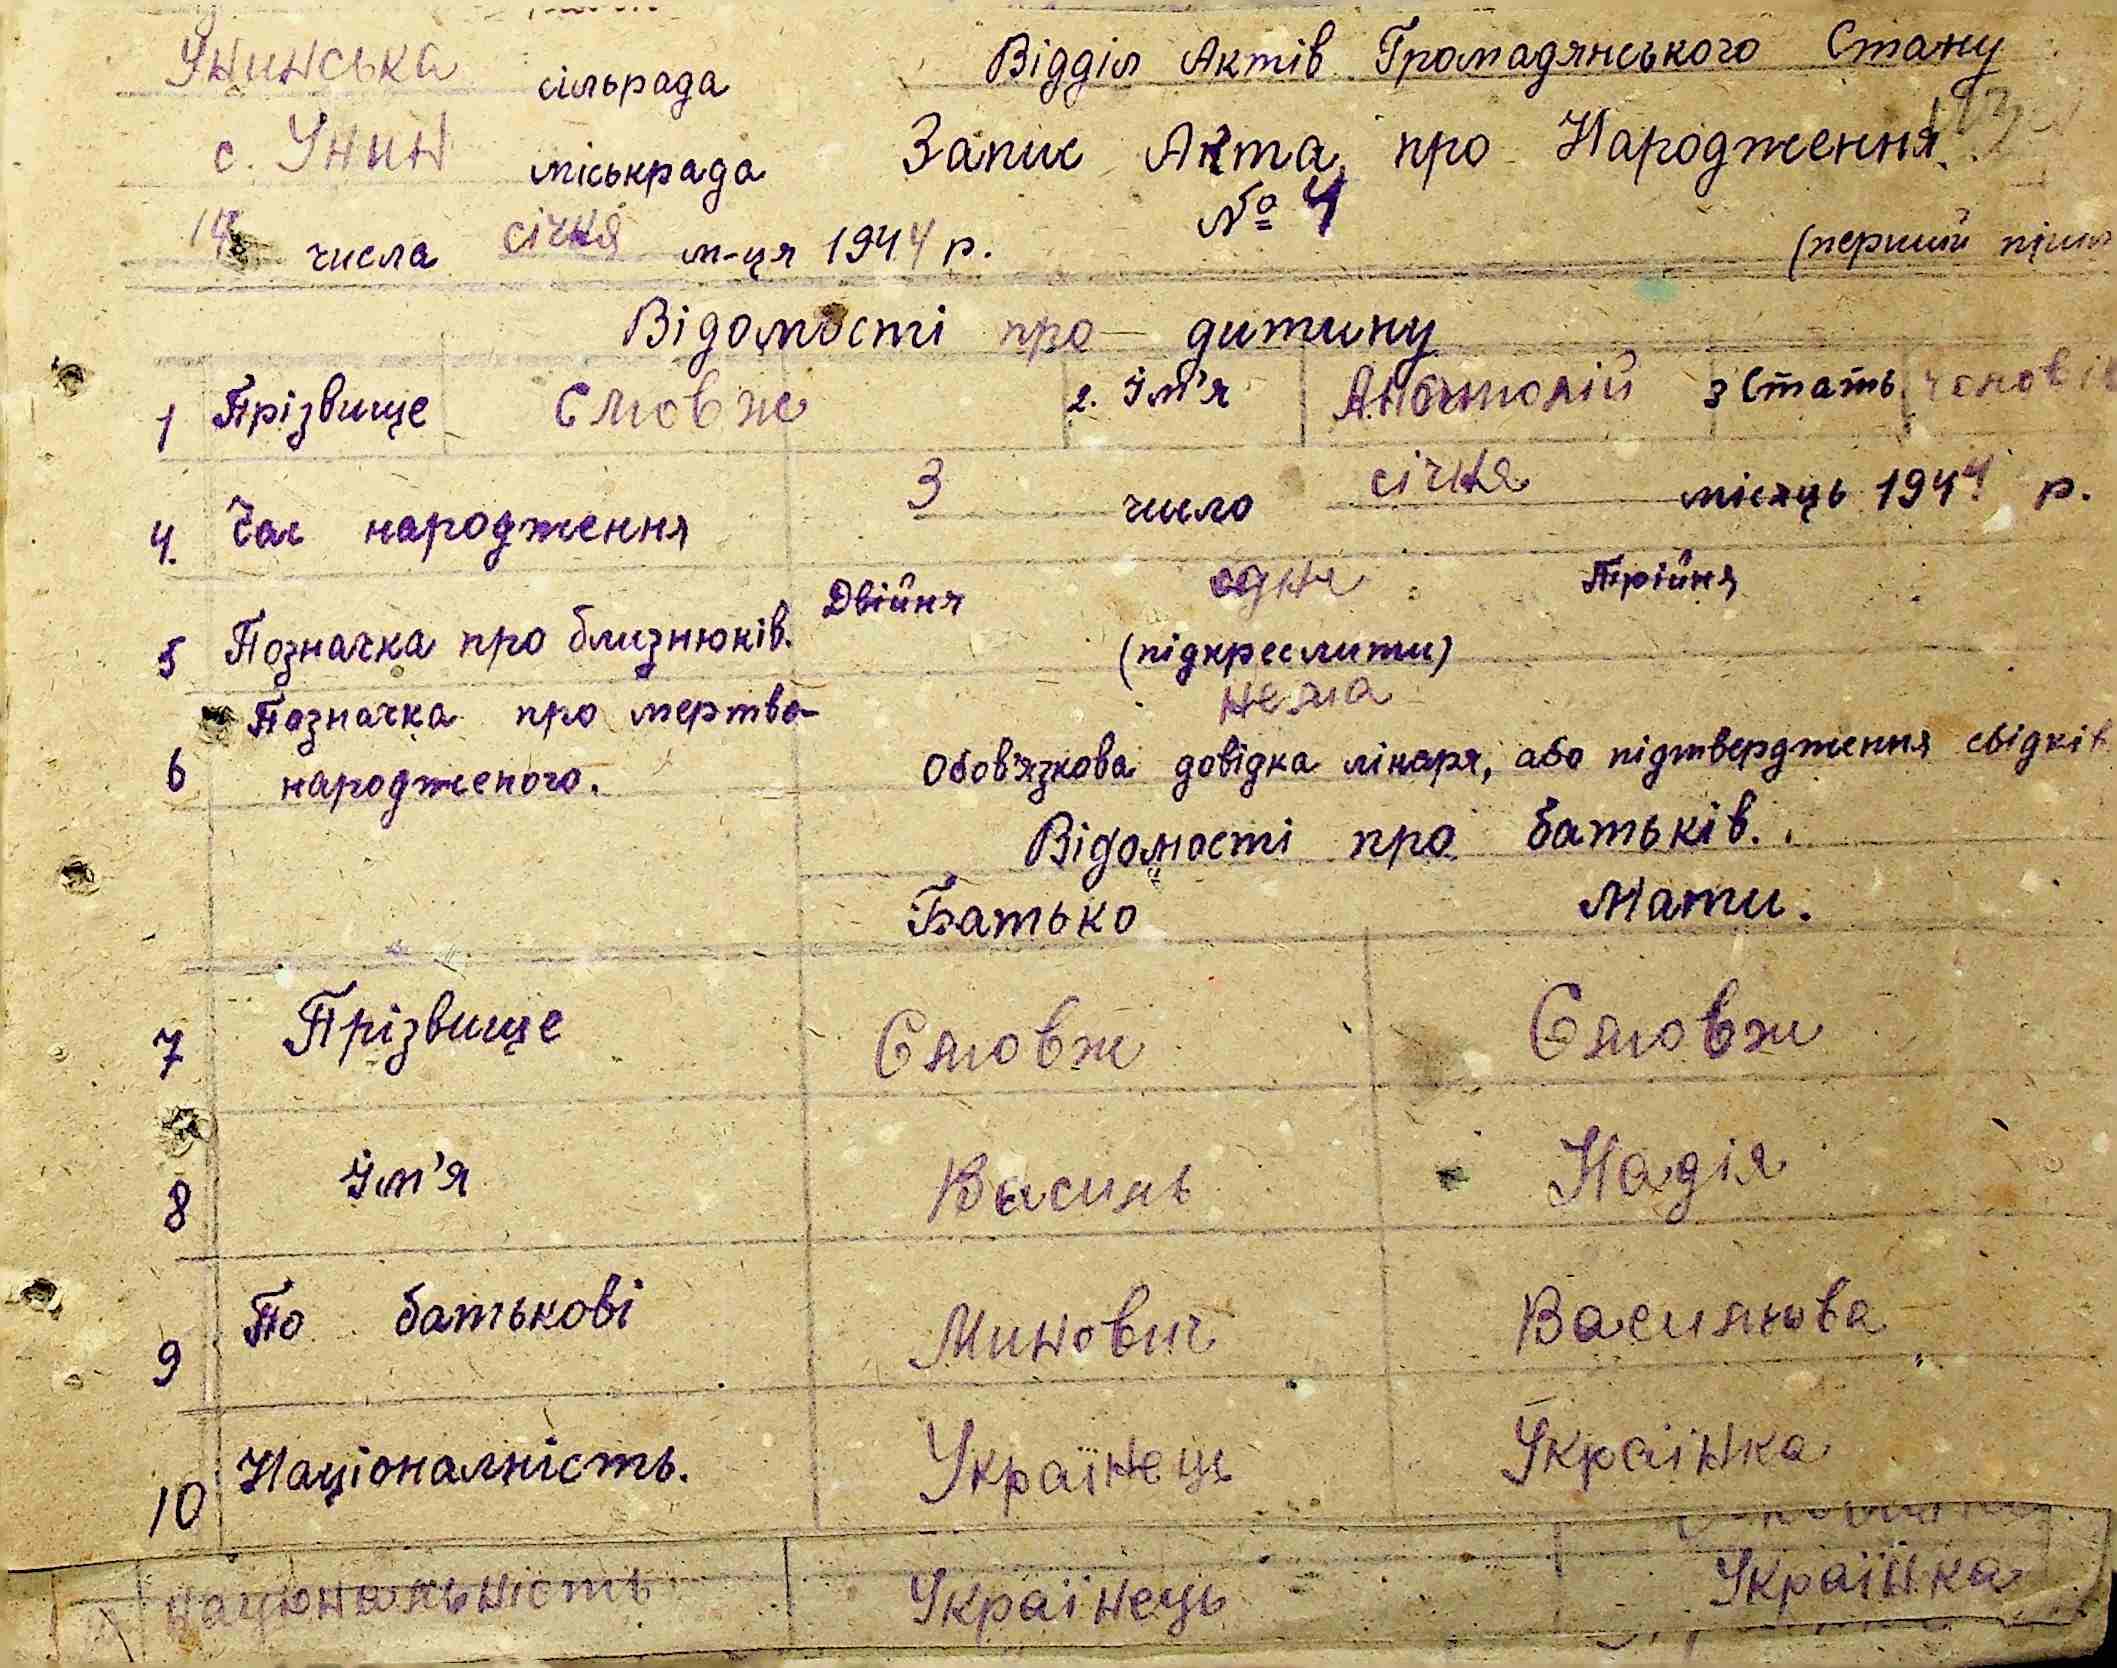 Унинська сільрада Відділ Актів Громадянського Стану
с. Унин міськрада Запис Акта про Народження
№ 4
14 числа січня м-ця 1944 р. (перший
Відомості про дитину
1 Прізвище Смовж 2. Ім'я Анатолій 3 Стать чолов
4. Час народження 3 число січня місяць 1944 р.
5 Позначка про близнюків. Двійня одне Трійня
(підкреслити)
6 Позначка про мертво- нема
народженого. Обов'язкова довідка лікаря, або підтвердження свідків
Відомості про батьків.
Батько Мати.
7 Прізвище Смовж Смовж
8 Ім'я Василь Надія
9 По батькові Минович Василювва
10 Націоналність. Українець Українка
Національність Українець Українка